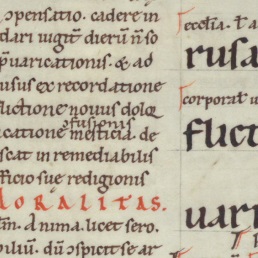 opensatio. cadere in
dari uigit dierū n̄ so
p̄uaricationis. & ad
usus ex recordatione
fluctione nouus dolor
ofusionis
catione mesticia. de
scat in remediabilis
fficio sue redigionis
MORALITAS.
ām. Anima. licet sero.
biliū. dū ospicit se ar
eccl̄ia. t̄ a
rusa
corporat̄ u
fluct
uari